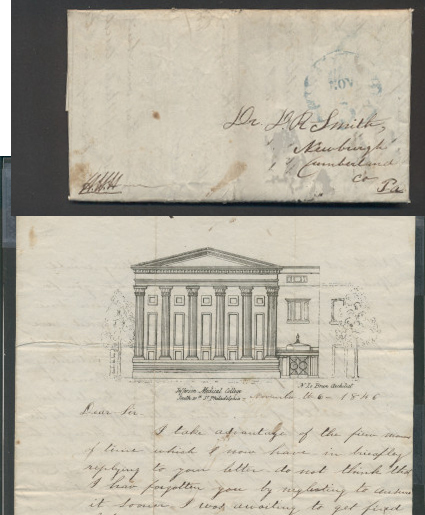 NOV
Dr. J. R. Smith,
Newburgh
" " Cumberland
Co
Pa
Jefferson Medical College
Tenth St Philadelphia
N. Le Brun Architect
6 - 1846
Dear Sir.
I take advantage of the few
of time which I now have in
replying to your letter do not think that
I have forgotten you by neglecting to
it sooner I was awaiting to get fixed